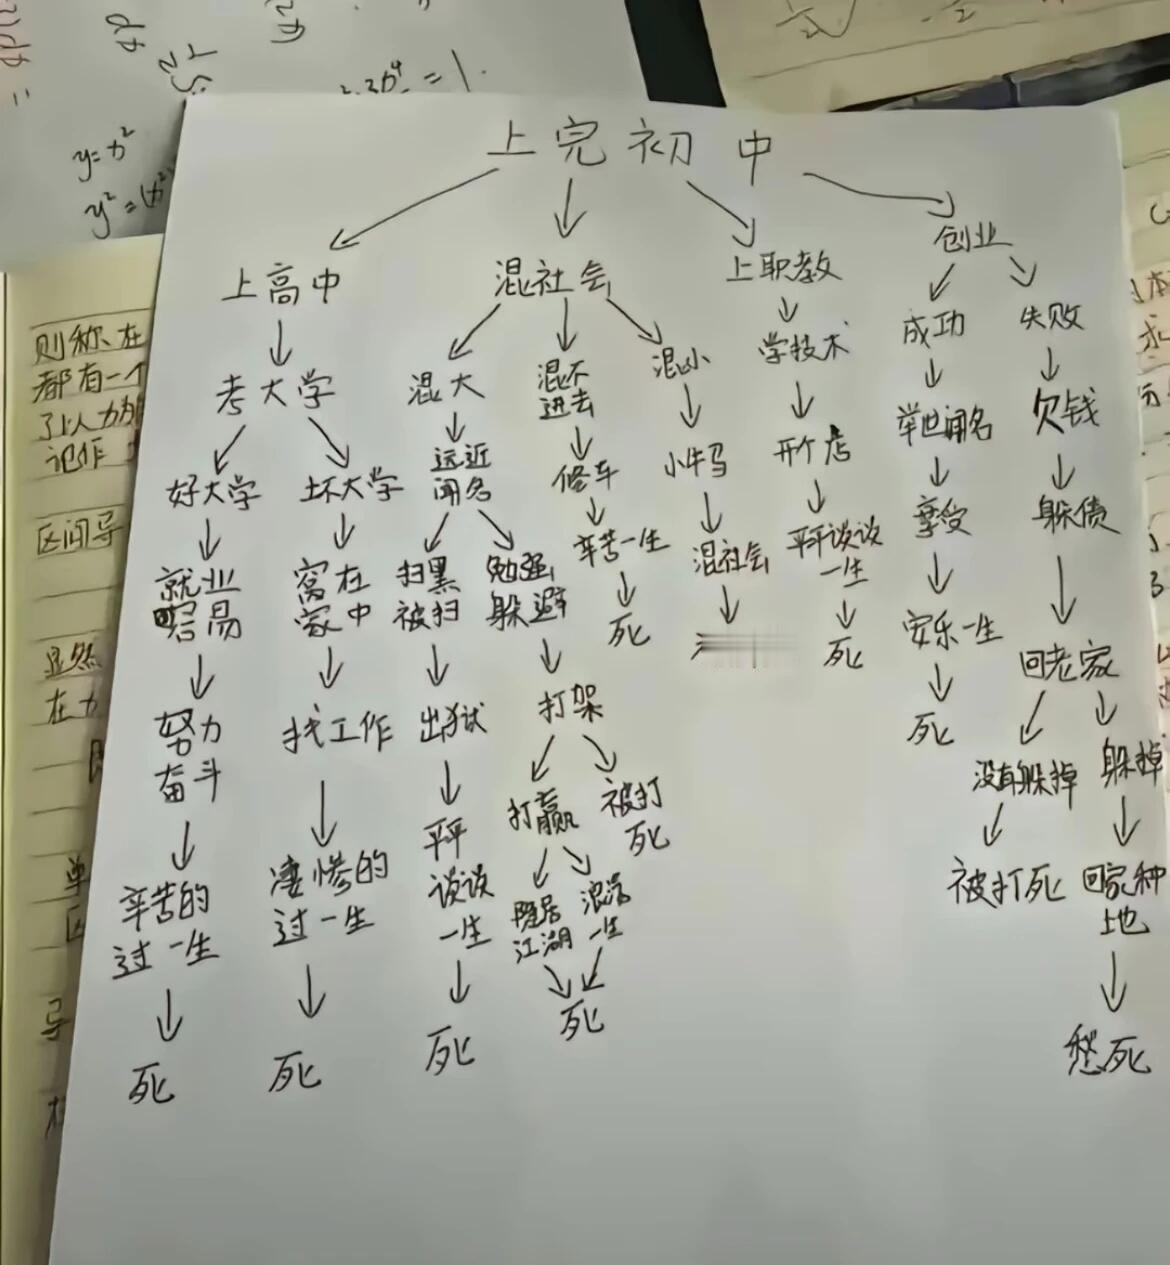 y=x²
上完初中
上高中
混社会
上职教
创业
考大学
混大
混不
进去
混小
学技术
成功
失败
好大学
坏大学
远近
闻名
修车
小牛马
开个店
举世闻名
欠钱
就业
容易
窝在
家中
扫黑
被扫
勉强
躲避
辛苦一生
混社会
平平谈谈
一生
享受
躲债
努力
奋斗
找工作
出狱
打架
死
死
安乐一生
回老家
辛苦的
过一生
凄惨的
过一生
平平
谈谈
一生
打赢
被打
死
死
没有躲掉
躲掉
隐居
江湖
浪荡
一生
被打死
回家种
地
死
死
死
死
愁死
则称在
都有一个
记作
区间导
显然
在